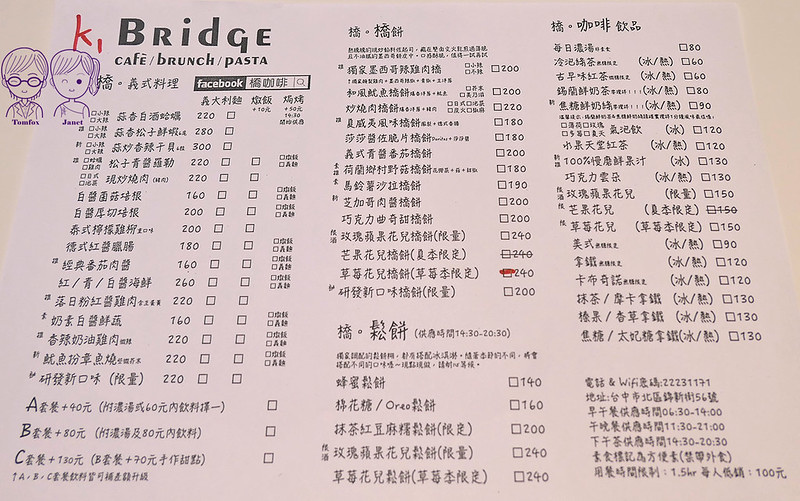 k, BRIDGE
CAFÈ/BRUNCH/PASTA
Tomfox Janet
橋。義式料理 facebook 橋咖啡
義大利麵 燉飯 焗烤
+10元 +50元
14:30
開始供應
□小辣 □大辣 蒜香白酒蛤蠣 220 □
□小辣 □大辣 蒜香松子鮮蝦 280 □
新 □小辣 □大辣 蒜炒香辣干貝 300 □
□蛤蠣 □雞肉 松子青醬羅勒 220 □ □ □燉飯 □義麵
□日式 □泡菜 現炒燒肉(豬肉) 220 □ □ □燉飯 □義麵
白醬菌菇培根 160 □ □ □燉飯 □義麵
白醬厚切培根 200 □ □ □燉飯 □義麵
泰式檸檬雞柳 200 □ □
德式紅醬臘腸 180 □ □ □燉飯 □義麵
經典番茄肉醬 160 □ □ □燉飯 □義麵
紅/青/白醬海鮮 260 □ □ □燉飯 □義麵
落日粉紅醬雞肉 220 □ □
素 奶素白醬鮮蔬 160 □ □ □燉飯 □義麵
香辣奶油雞肉 220 □ □ □燉飯 □義麵
新 魷魚扮章魚燒 220 □ □ □燉飯 □義麵
研發新口味(限量) 220 □ □
A套餐+40元 (附濃湯或60元內飲料擇一) □
B套餐+80元 (附濃湯及80元內飲料) □
C套餐+130元 (B套餐+70元手作甜點) □
↑A,B,C套餐飲料皆可補差額升級
橋。橋餅
獨家墨西哥辣雞肉橋 □小辣 □不辣 □200
和風魷魚橋餅 □200
炒燒肉橋餅 □日式□泡菜 □200
夏威夷風味橋餅 □180
莎莎醬佐脆片橋餅 □200
義式青醬番茄橋餅 □200
荷蘭鄉村野菇橋餅 □180
馬鈴薯沙拉橋餅 □190
新 芝加哥肉醬橋餅 □200
巧克力曲奇甜橋餅 □200
限酒 玫瑰蘋果花兒橋餅(限量) □240
芒果花兒橋餅(夏季限定) □240
草莓花兒橋餅(草莓季限定) □240
研發新口味橋餅(限量) □200
橋。鬆餅 (供應時間14:30-20:30)
獨家調配的鬆餅糊,都有搭配冰淇淋。隨著季節的不同,將會
搭配不同的口味唷~現點現做,請耐心等候。
蜂蜜鬆餅 □140
棉花糖/Oreo鬆餅 □160
抹茶紅豆麻糬鬆餅(限定) □200
限酒 玫瑰蘋果花兒鬆餅(限量) □240
草莓花兒鬆餅(草莓季限定) □240
橋。咖啡 飲品
每日濃湯 □80
冷泡綠茶 (冰/熱) □60
古早味紅茶 (冰/熱) □60
錫蘭鮮奶茶 (冰/熱) □80
新 焦糖鮮奶綠 (冰/熱) □90
□薄荷□玫瑰 □多莓□夏天 氣泡飲 (冰) □120
水果天堂紅茶 (冰/熱) □120
新 100%慢磨鮮果汁 (冰) □130
巧克力雲朵 (冰/熱) □130
限酒 玫瑰蘋果花兒 (限量) □150
限 芒果花兒 (夏季限定) □150
限 草莓花兒 (草莓季限定) □150
美式 (冰/熱) □90
拿鐵 (冰/熱) □120
卡布奇諾 (冰/熱) □120
抹茶/摩卡拿鐵 (冰/熱) □130
榛果/香草拿鐵 (冰/熱) □130
焦糖/太妃糖拿鐵(冰/熱) □130
電話 & Wifi密碼:22231171
地址:台中市北區錦新街56號
早午餐供應時間06:30-14:00
午晚餐供應時間11:30-21:00
下午茶供應時間14:30-20:30
素食標記為方便素(禁帶外食)
用餐時間限制:1.5hr 每人低銷:100元